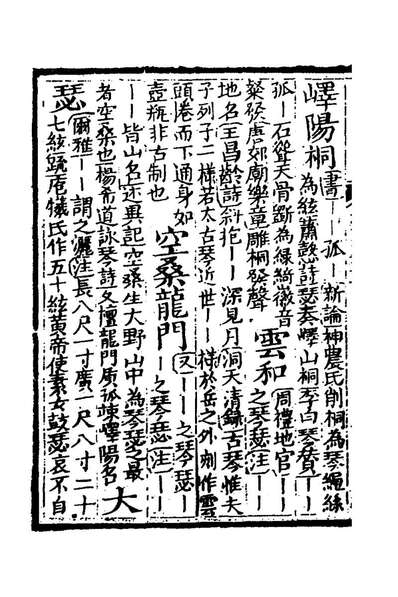 嶧陽桐書｜｜孤｜新論神農氏削桐為琴繩絲
為絃蕭慤詩瑟奏嶧山桐李白琴贊｜｜
孤｜石聳天骨斵為綠綺徽音
粲發唐郊廟樂章雕桐發聲雲和周禮地官｜｜
之琴瑟注｜｜
地名王昌齡詩斜抱｜｜深見月洞天清錄古琴惟夫
子列子二樣若太古琴近世｜｜樣於岳之外刻作雲
頭卷而下通身如
壺瓶非古制也空桑龍門又｜｜｜｜之琴瑟｜
｜之琴瑟注｜｜
｜皆山名述異記空桑生大野山中為琴瑟之最
者空桑也楊希道詠琴詩久擅龍門質孤竦嶧陽名大
瑟爾雅｜｜謂之灑注長八尺一寸廣一尺八寸二十
七絃䟽庖犧氏作五十絃黄帝使素女鼓瑟哀不自